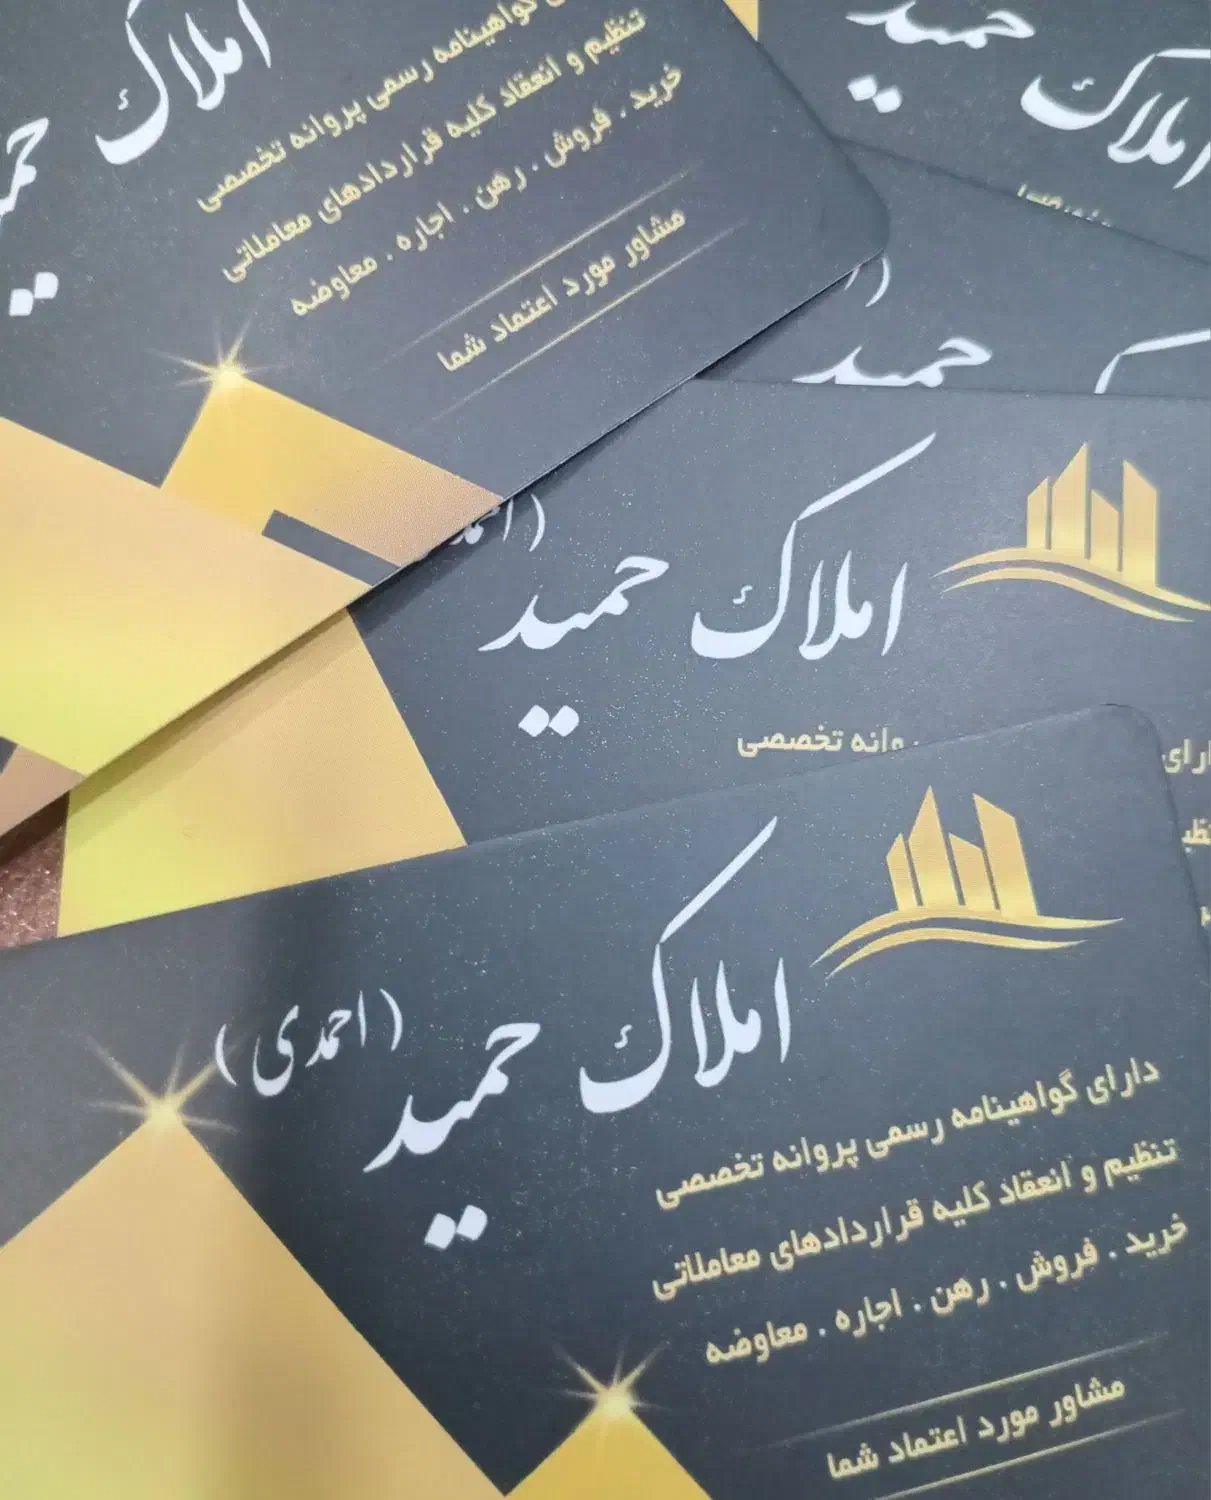 املاک
حمید
گواهینامه رسمی پروانه تخصصی
تنظیم و انعقاد کلیه قراردادهای معاملاتی
خرید . فروش . رهن . اجاره . معاوضه
مشاور مورد اعتماد شما
املاک حمید
حمید
املاک حمید
پروانه تخصصی
املاک حمید (احمدی)
دارای گواهینامه رسمی پروانه تخصصی
تنظیم و انعقاد کلیه قراردادهای معاملاتی
خرید . فروش . رهن . اجاره . معاوضه
مشاور مورد اعتماد شما